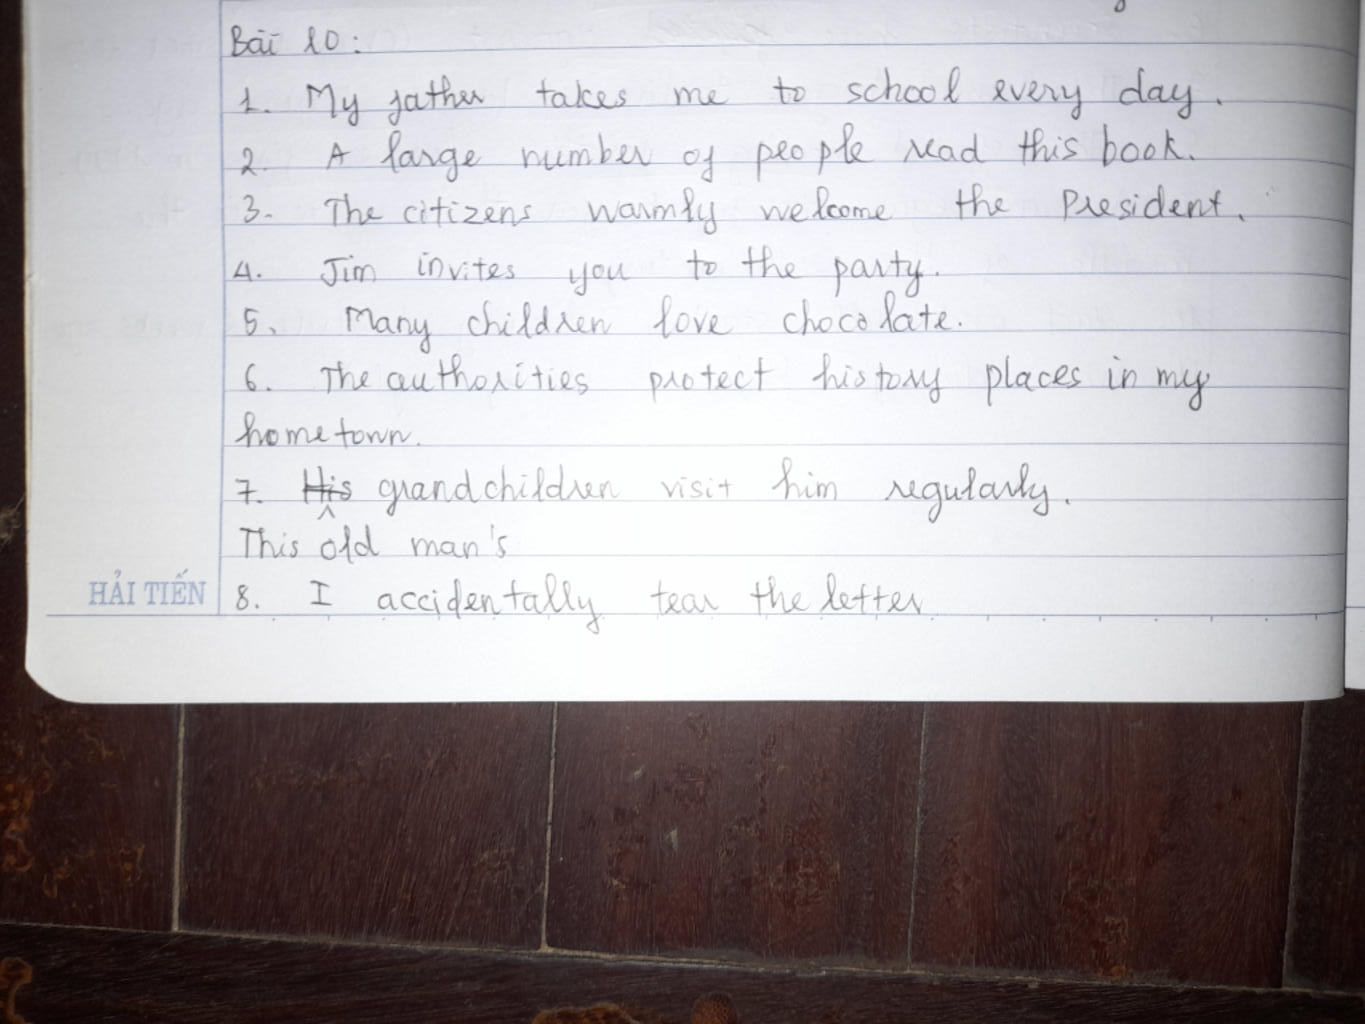 Bài 10:
1. My father takes me to school every day.
2. A large number of people read this book.
3. The citizens warmly welcome the President.
4. Jim invites you to the party.
5. Many children love chocolate.
6. The authorities protect history places in my
hometown.
7. His grandchildren visit him regularly.
This old man's
HẢI TIẾN
8. I accidentally tear the letter